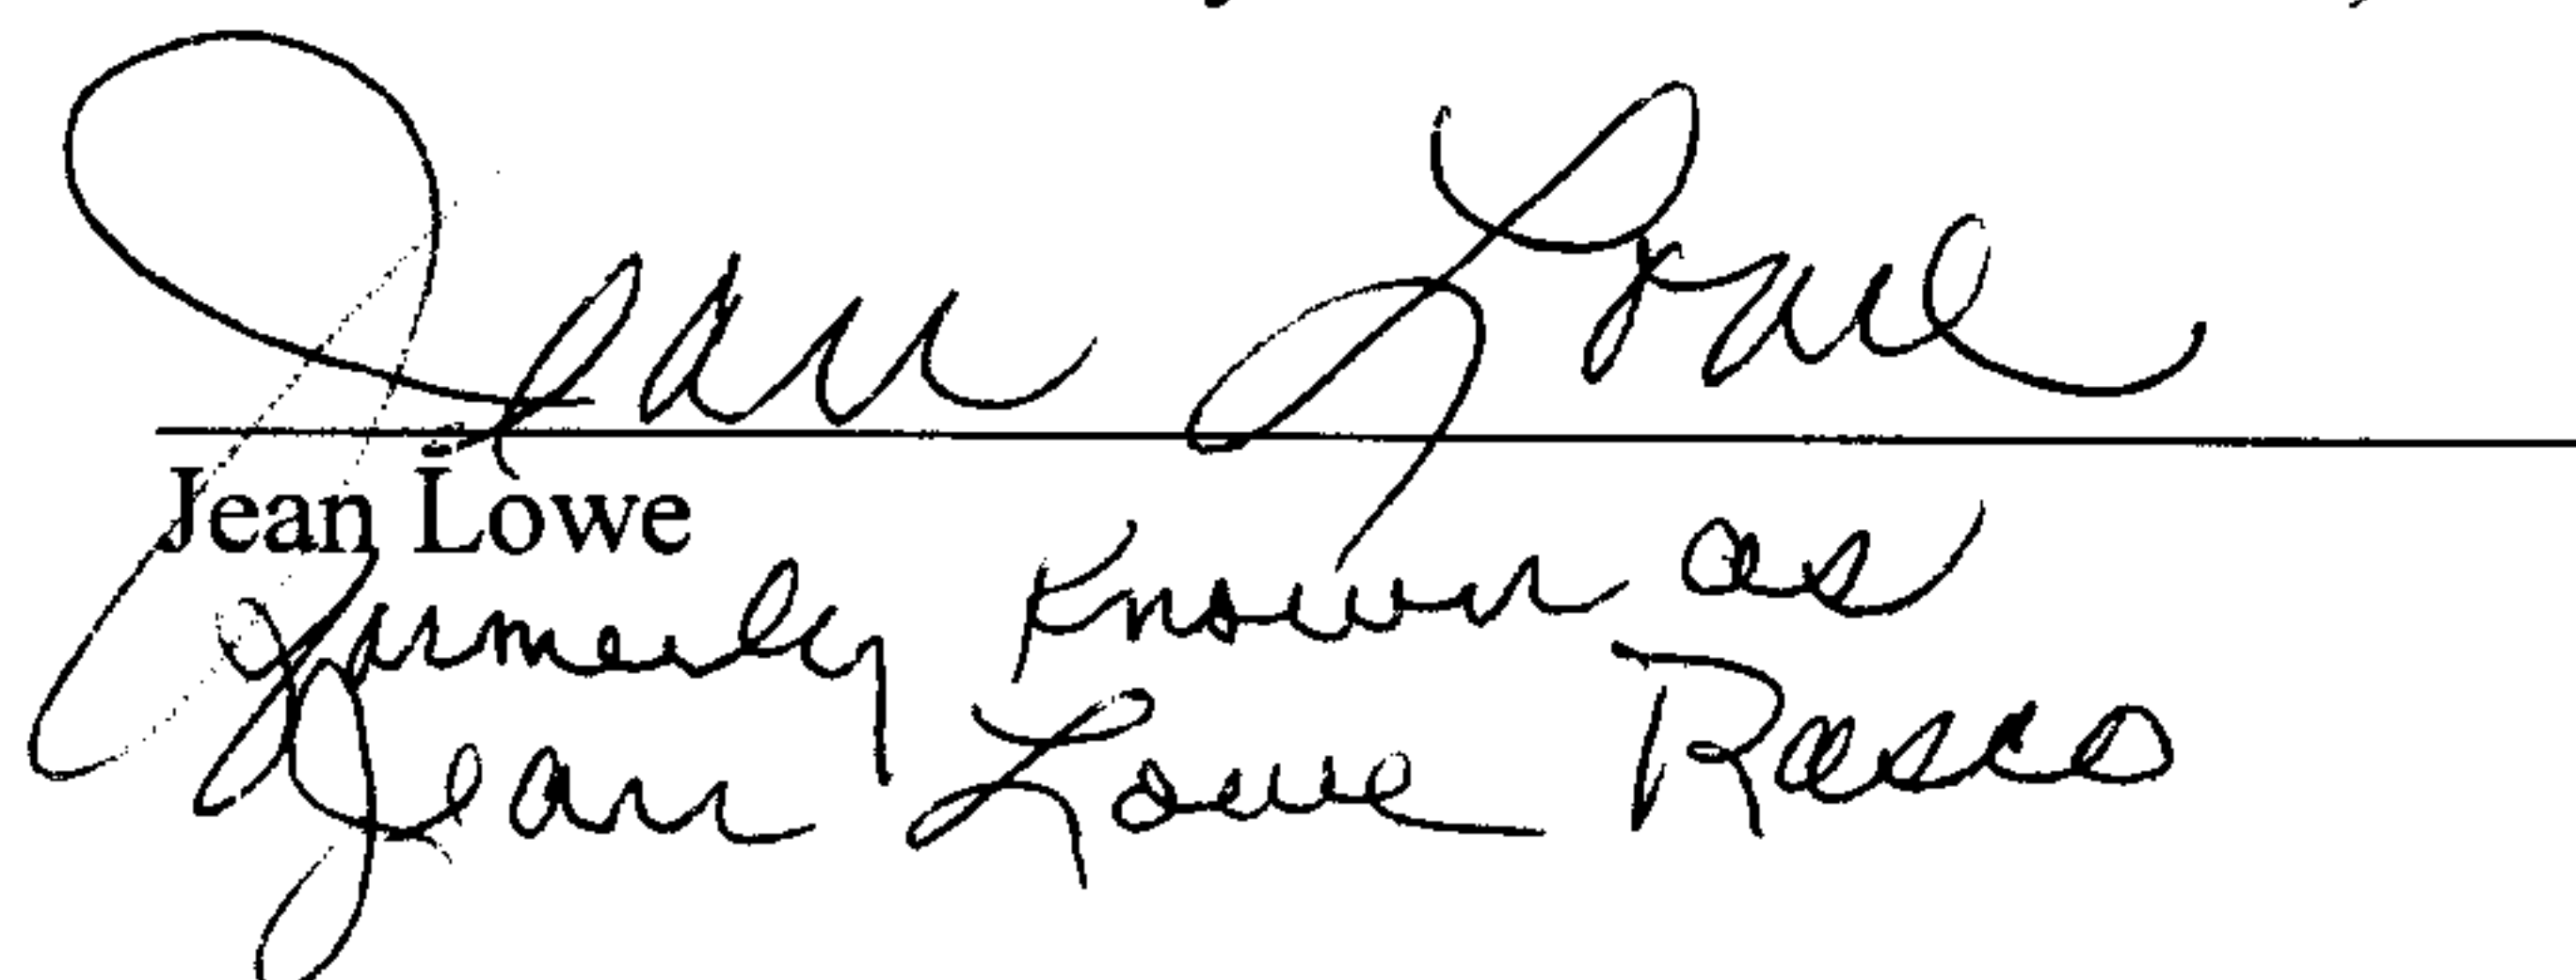 Jean Lowe
Jean Lowe
formerly known as
Jean Lowe Rasco